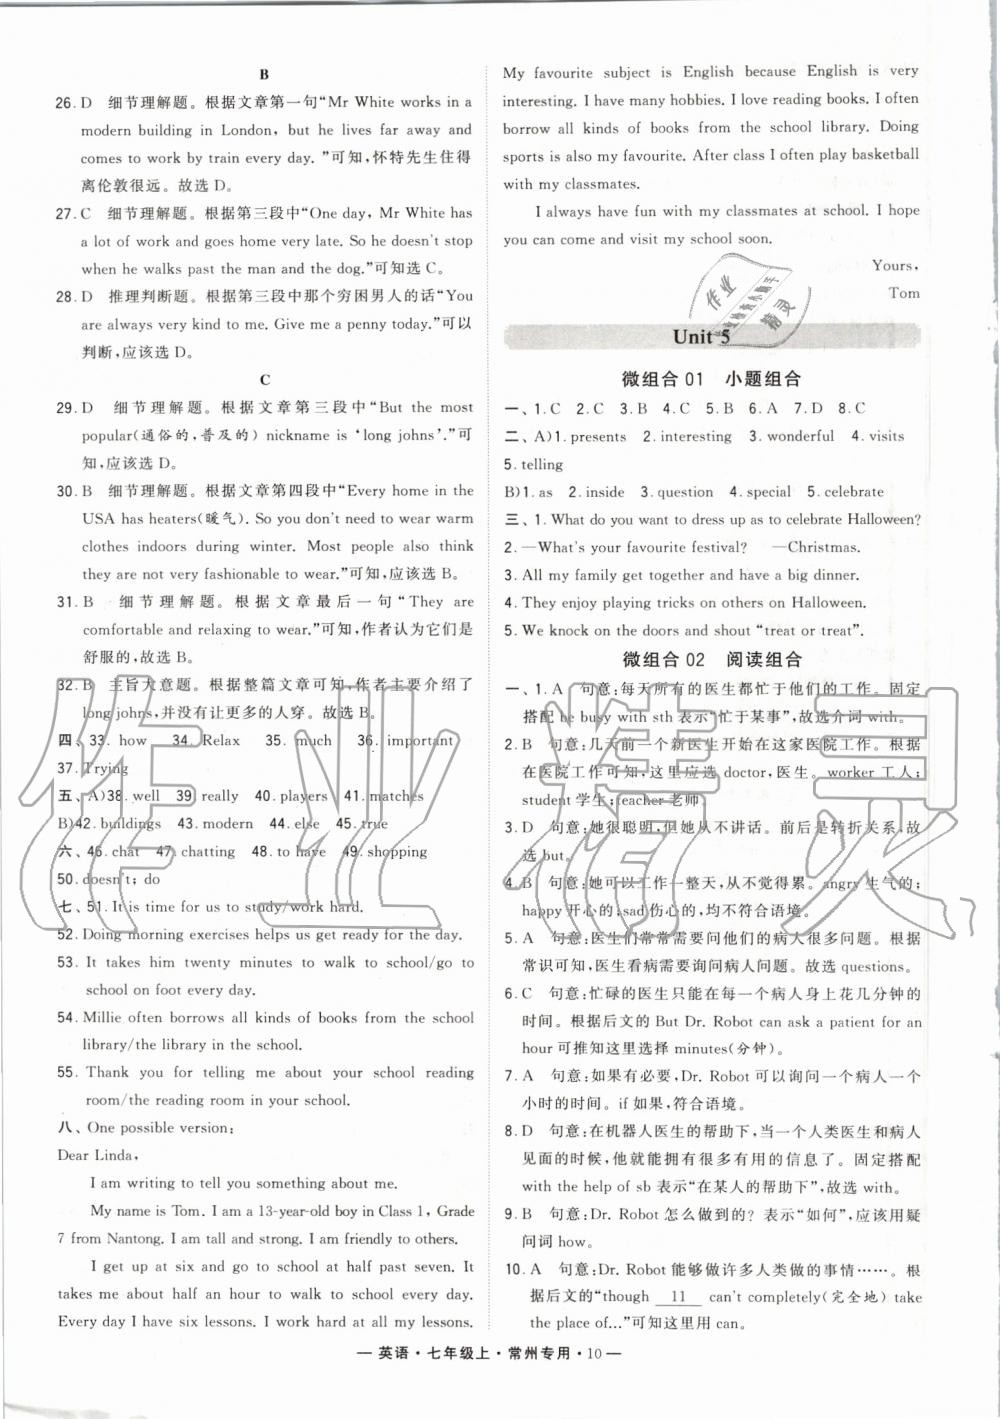 B
26. D 细节理解题。根据文章第一句“Mr White works in a
modern building in London, but he lives far away and
comes to work by train every day.”可知,怀特先生住得
离伦敦很远。故选 D。
27. C 细节理解题。根据第三段中“One day, Mr White has
a lot of work and goes home very late. So he doesn't stop
when he walks past the man and the dog.”可知选 C。
28. D 推理判断题。根据第三段中那个穷困男人的话“You
are always very kind to me. Give me a penny today.”可以
判断,应该选 D。
C
29. D 细节理解题。根据文章第三段中“But the most
popular(通俗的,普及的) nickname is ‘long johns’.”可
知,应该选 D。
30. B 细节理解题。根据文章第四段中“Every home in the
USA has heaters(暖气). So you don't need to wear warm
clothes indoors during winter. Most people also think
they are not very fashionable to wear.”可知,应该选 B。
31. B 细节理解题。根据文章最后一句“They are
comfortable and relaxing to wear.”可知,作者认为它们是
舒服的,故选 B。
32. B 主旨大意题。根据整篇文章可知,作者主要介绍了
long johns,并没有让更多的人穿。故选 B。
四、33. how 34. Relax 35. much 36. important
37. Trying
五、A)38. well 39. really 40. players 41. matches
B)42. buildings 43. modern 44. else 45. true
六、46. chat 47. chatting 48. to have 49. shopping
50. doesn't; do
七、51. It is time for us to study/work hard.
52. Doing morning exercises helps us get ready for the day.
53. It takes him twenty minutes to walk to school/go to
school on foot every day.
54. Millie often borrows all kinds of books from the school
library/the library in the school.
55. Thank you for telling me about your school reading
room/the reading room in your school.
八、One possible version:
Dear Linda,
I am writing to tell you something about me.
My name is Tom. I am a 13-year-old boy in Class 1, Grade
7 from Nantong. I am tall and strong. I am friendly to others.
I get up at six and go to school at half past seven. It
takes me about half an hour to walk to school every day.
Every day I have six lessons. I work hard at all my lessons.
My favourite subject is English because English is very
interesting. I have many hobbies. I love reading books. I often
borrow all kinds of books from the school library. Doing
sports is also my favourite. After class I often play basketball
with my classmates.
I always have fun with my classmates at school. I hope
you can come and visit my school soon.
Yours,
Tom
Unit 5
微组合 01 小题组合
一、1. C 2. C 3. B 4. C 5. B 6. A 7. D 8. C
二、A)1. presents 2. interesting 3. wonderful 4. visits
5. telling
B)1. as 2. inside 3. question 4. special 5. celebrate
三、1. What do you want to dress up as to celebrate Halloween?
2. —What's your favourite festival? —Christmas.
3. All my family get together and have a big dinner.
4. They enjoy playing tricks on others on Halloween.
5. We knock on the doors and shout “treat or treat”.
微组合 02 阅读组合
一、1. A 句意:每天所有的医生都忙于他们的工作。固定
搭配 be busy with sth 表示“忙于某事”,故选介词 with。
2. B 句意:几天前一个新医生开始在这家医院工作。根据
在医院工作可知,这里应选 doctor,医生。worker 工人;
student 学生;teacher 老师。
3. D 句意:她很聪明,但她从不讲话。前后是转折关系,故
选 but。
4. B 句意:她可以工作一整天,从不觉得累。angry 生气的;
happy 开心的;sad 伤心的,均不符合语境。
5. A 句意:医生们常常需要问他们的病人很多问题。根据
常识可知,医生看病需要询问病人问题。故选 questions。
6. C 句意:忙碌的医生只能在每一个病人身上花几分钟的
时间。根据后文的 But Dr. Robot can ask a patient for an
hour 可推知这里选择 minutes(分钟)。
7. A 句意:如果有必要,Dr. Robot 可以询问一个病人一个
小时的时间。if 如果,符合语境。
8. D 句意:在机器人医生的帮助下,当一个人类医生和病人
见面的时候,他就能拥有很多有用的信息了。固定搭配
with the help of sb 表示“在某人的帮助下”,故选 with。
9. B 句意:Dr. Robot 怎么做到的? 表示“如何”,应该用疑
问词 how。
10. A 句意:Dr. Robot 能够做许多人类做的事情……。根
据后文的“though 11 can't completely(完全地) take
the place of...”可知这里用 can。
— 英语·七年级上·常州专用·10 —
作业精灵
作业
精灵